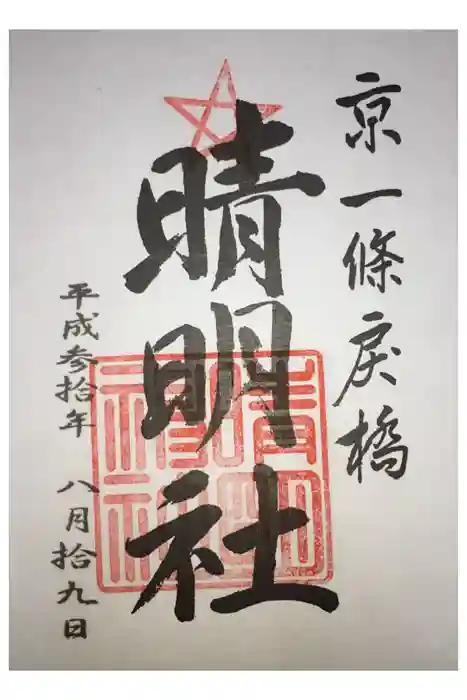 京一條戻橋
晴明社
平成参拾年 八月拾九日